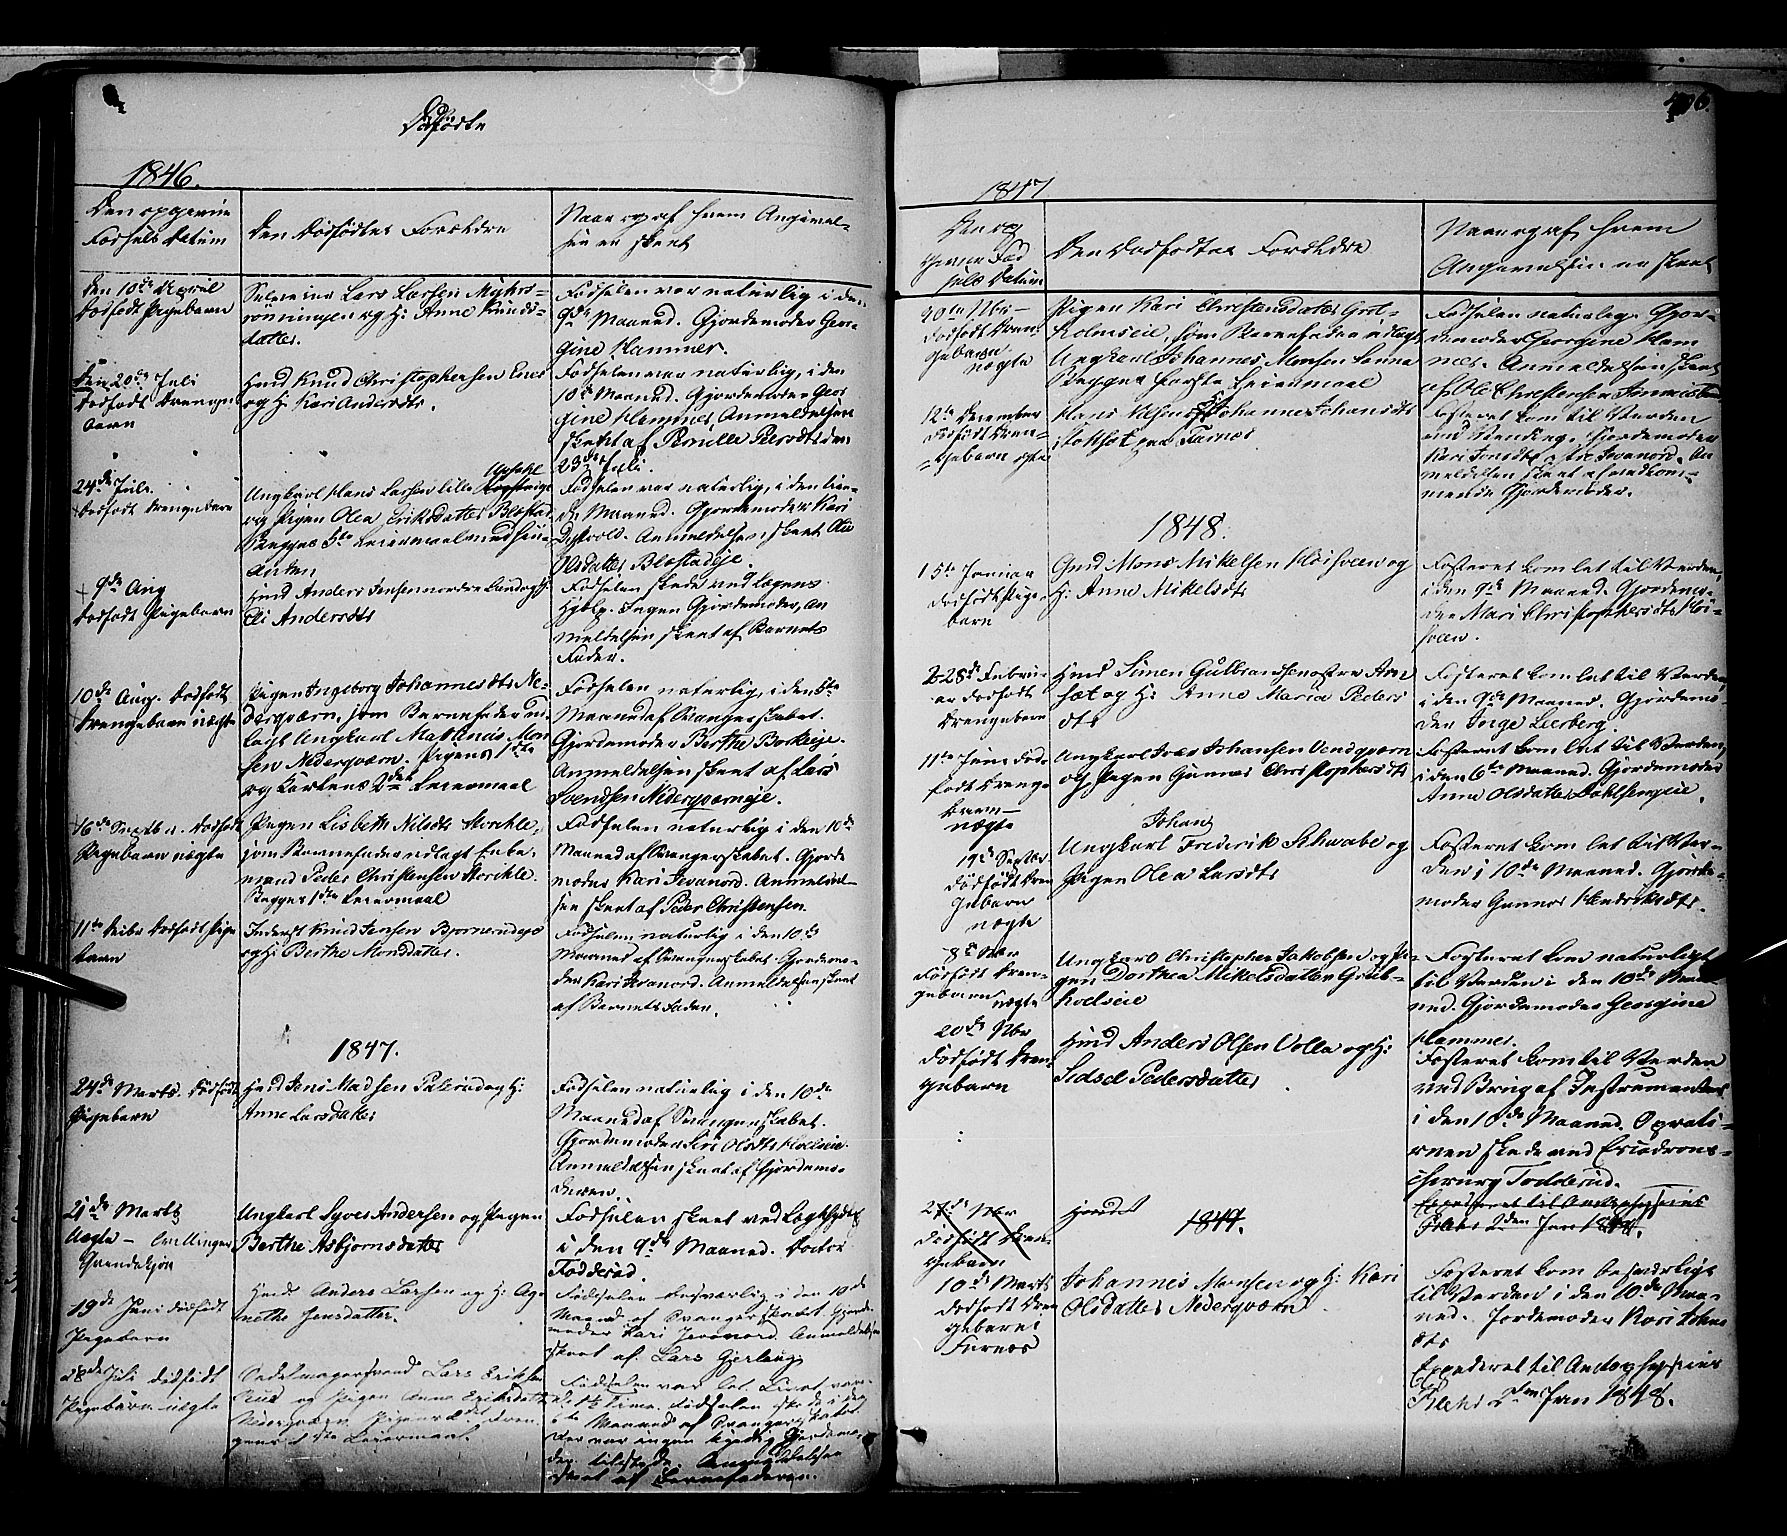 Dødfødte
1846.
Den opgivne
Fødsels Datum
Den Dødfødtes Forældre
Naar og af hvem Angivel-
sen er skeet
Den 10de April
Dødfødt Pigebarn
Lars Larsen Myhrs-
rønningen og H: Anne Knuds-
datter.
Fødselen var naturlig i den
9de Maaned. Gjordemoder Geor-
gine Hammer.
Den 20de Juli
Dødfødt Drenge-
barn
Hmd Knud Christophersen Enes
og H: Kari Andersdtr.
Fødselen var naturlig, i den
10de Maaned. Gjordemoder Geor
gine Hammer, Anmeldelsen
skeet af Pernille Pedersdtr den
23de Juli.
24de Juli
Dødfødt Drengebarn
Ungkarl Hans Larsen Lille
og Pigen Olea Eriksdatter Blæstad
Begges 5te Leiermaal med hin-
anden
Fødselen var naturlig, i den
Maaned. Gjordemoder Kari
Dystvold. Anmeldelsen skeet
Olsdatter Blæstadeje.
9de Aug
Dødfødt Pigebarn
Hmd Anders Jensen nordre og H:
Eli Andersdtr
Fødselen skede ved Lægens
Hjelp. Ingen Gjordemoder, An
meldelsen skeet af Barnets
Fader.
10de Aug. Dødfødt
Drengebarn uægte
Pigen Ingeborg Johannesdtr Ne-
derqværn, som Barnefader ud-
lagt Ungkarl Mathias Mon
sen Nederqværn. Pigens 1ste
og Karlens 2det Leiermaal
Fødselen naturlig, i den 5te
Maaned af Svangerskabet.
Gjordemoder Berthe Bakkeje.
Anmeldelsen skeet af Lars
Svendsen Nederqværneje.
16de Septbr. Dødfødt
Pigebarn uægte
Pigen Lisbeth Nilsdtr Storhle,
som Barnefader udlagt Enke-
mand Peder Christensen Storhle.
Begges 1ste Leiermaal
Fødselen naturlig i den 10de
Maaned af Svangerskabet. Gjorde
moder Kari Jevanord. Anmeldel-
sen skeet af Peder Christensen.
11te Dcbr Dødfødt Pige
barn
Inderst Knud Jensen Bjørnerudeje
og H: Berthe Monsdatter.
Fødselen naturlig i den 10de
Maaned af Svangerskabet. Gjordemo-
der Kari Jevanord. Anmeldelsen skeet
af Barnets Fader.
1847.
24de Marts. Dødfødt
Pigebarn
Hmd Jens Madsen Palerud og H:
Anne Larsdatter
Fødselen naturlig i den 10de
Maaned af Svangerskabet.
Gjordemoder Siri Olsdtr Holseie.
Anmeldelsen skeet af Gjordemo-
deren.
21de Marts
Uægte – Tvillinger
Qvindekjøn
Ungkarl Syver Andersen og Pigen
Berthe Asbjørnsdatter
Fødselen skeet ved Lægehjelp
i den 9de Maaned. Doctor
Todderud.
19de Juni dødfødt
Pigebarn
Hmd Anders Larsen og H: Ag-
nethe Jensdatter.
Fødselen besværlig i den 10de
Maaned af Svangerskabet. Gjorde-
moder Kari Jevanord. Anmeldelsen
skeet af Lars Gjerlaug.
28de Juli dødfødt
Pigebarn uægte
Sadelmagersvend Lars Eriksen
og Pigen Anne Eriksdatter
Nederqværn
1ste Leiermaal.
Fødselen var let.
Fødselen skede i den
6te Maaned af Svangerskabet.
Der var ingen Gjordemo-
der tilstede. Anmeldelsen
skeet af Barnefaderen.
406
1847
Den op
givne Fød
sels Datum
Den Dødfødtes Forældre
Naar og af hvem
Angivelsen er skeet
20de Nbr –
Dødfødt Dren-
gebarn
uægte
Pigen Kari Christensdatter Grøt-
holmseie, som Barnefader udlagt
Ungkarl Johannes Monsen
Begges første Leiermaal
Fødselen naturlig. Gjor-
demoder Georgine Ham
mer. Anmeldelsen skeet
af Ole Christensen
12te December
Dødfødt Dren-
gebarn ægte
Hans Olsen og Johanne Johansdtr
Furnes
Fosteret kom til Verden
ved Vending. Gjordemoder
Kari Jonsdtr Jevanord. An
meldelsen skeet af vedkom-
mende Gjordemoder.
1848.
1 5te Januar
dødfødt Pige-
barn
Gmd Mons Mikelsen Hoisveen og
H: Anne Mikelsdtr
Fosteret kom let til Verden,
i den 9de Maaned. Gjordemo-
der Mari Christophersdtr Hoi-
sveen.
2 28de Februar
dødfødt
Drengebarn
Hmd Simen Gulbransen
og H: Anne Maria Peders
dtr
Fosteret kom let til Verden
i den 9de Maaned. Gjordemo-
der Inge Lierberg.
11te Juni død-
født Drenge-
barn –
uægte
Ungkarl Iver Johansen Vendqværn
og Pigen Gunnor Christophersdtr
Fosteret kom let til Verden,
i den 6te Maaned. Gjordemoder
Anne Olsdatter Dahlsengeie.
19de Septbr
dødfødt Dren
gebarn
uægte
Johan
Ungkarl Frederik Schwabe og
Pigen Olea Larsdtr
Fosteret kom let til Ver-
den i 10de Maaned. Gjorde-
moder Gunnor Henriksdtr.
8de Nbr
Dødfødt Dren-
gebarn uægte
Ungkarl Christopher Jakobsen og Pi-
gen Dorthea Mikelsdatter Grøt-
holseie
Fosteret kom naturligt
til Verden i den 10de Maa
ned. Gjordemoder Georgine
Hammer.
20de Nbr
Dødfødt Dren
gebarn
Hmd Anders Olsen Volla og H:
Sidsel Pedersdatter
Fosteret kom til Verden
ved Brug af Instrumenter
i den 10de Maaned. Operati-
onen skede ved Escadrons-
chirurg Todderud.
Expederet til
2den Janr
27de Nbr
Dødfødt Dren-
gebarn
1849.
10de Marts
dødfødt Dren
gebarn
Furnes
Johannes Monsen og H: Kari
Olsdatter Nederqværn
Fosteret kom besværligt
til Verden i den 10de Maa-
ned. Jordemoder Kari Johns
dtr
Expederet til
2den Janr 1848.